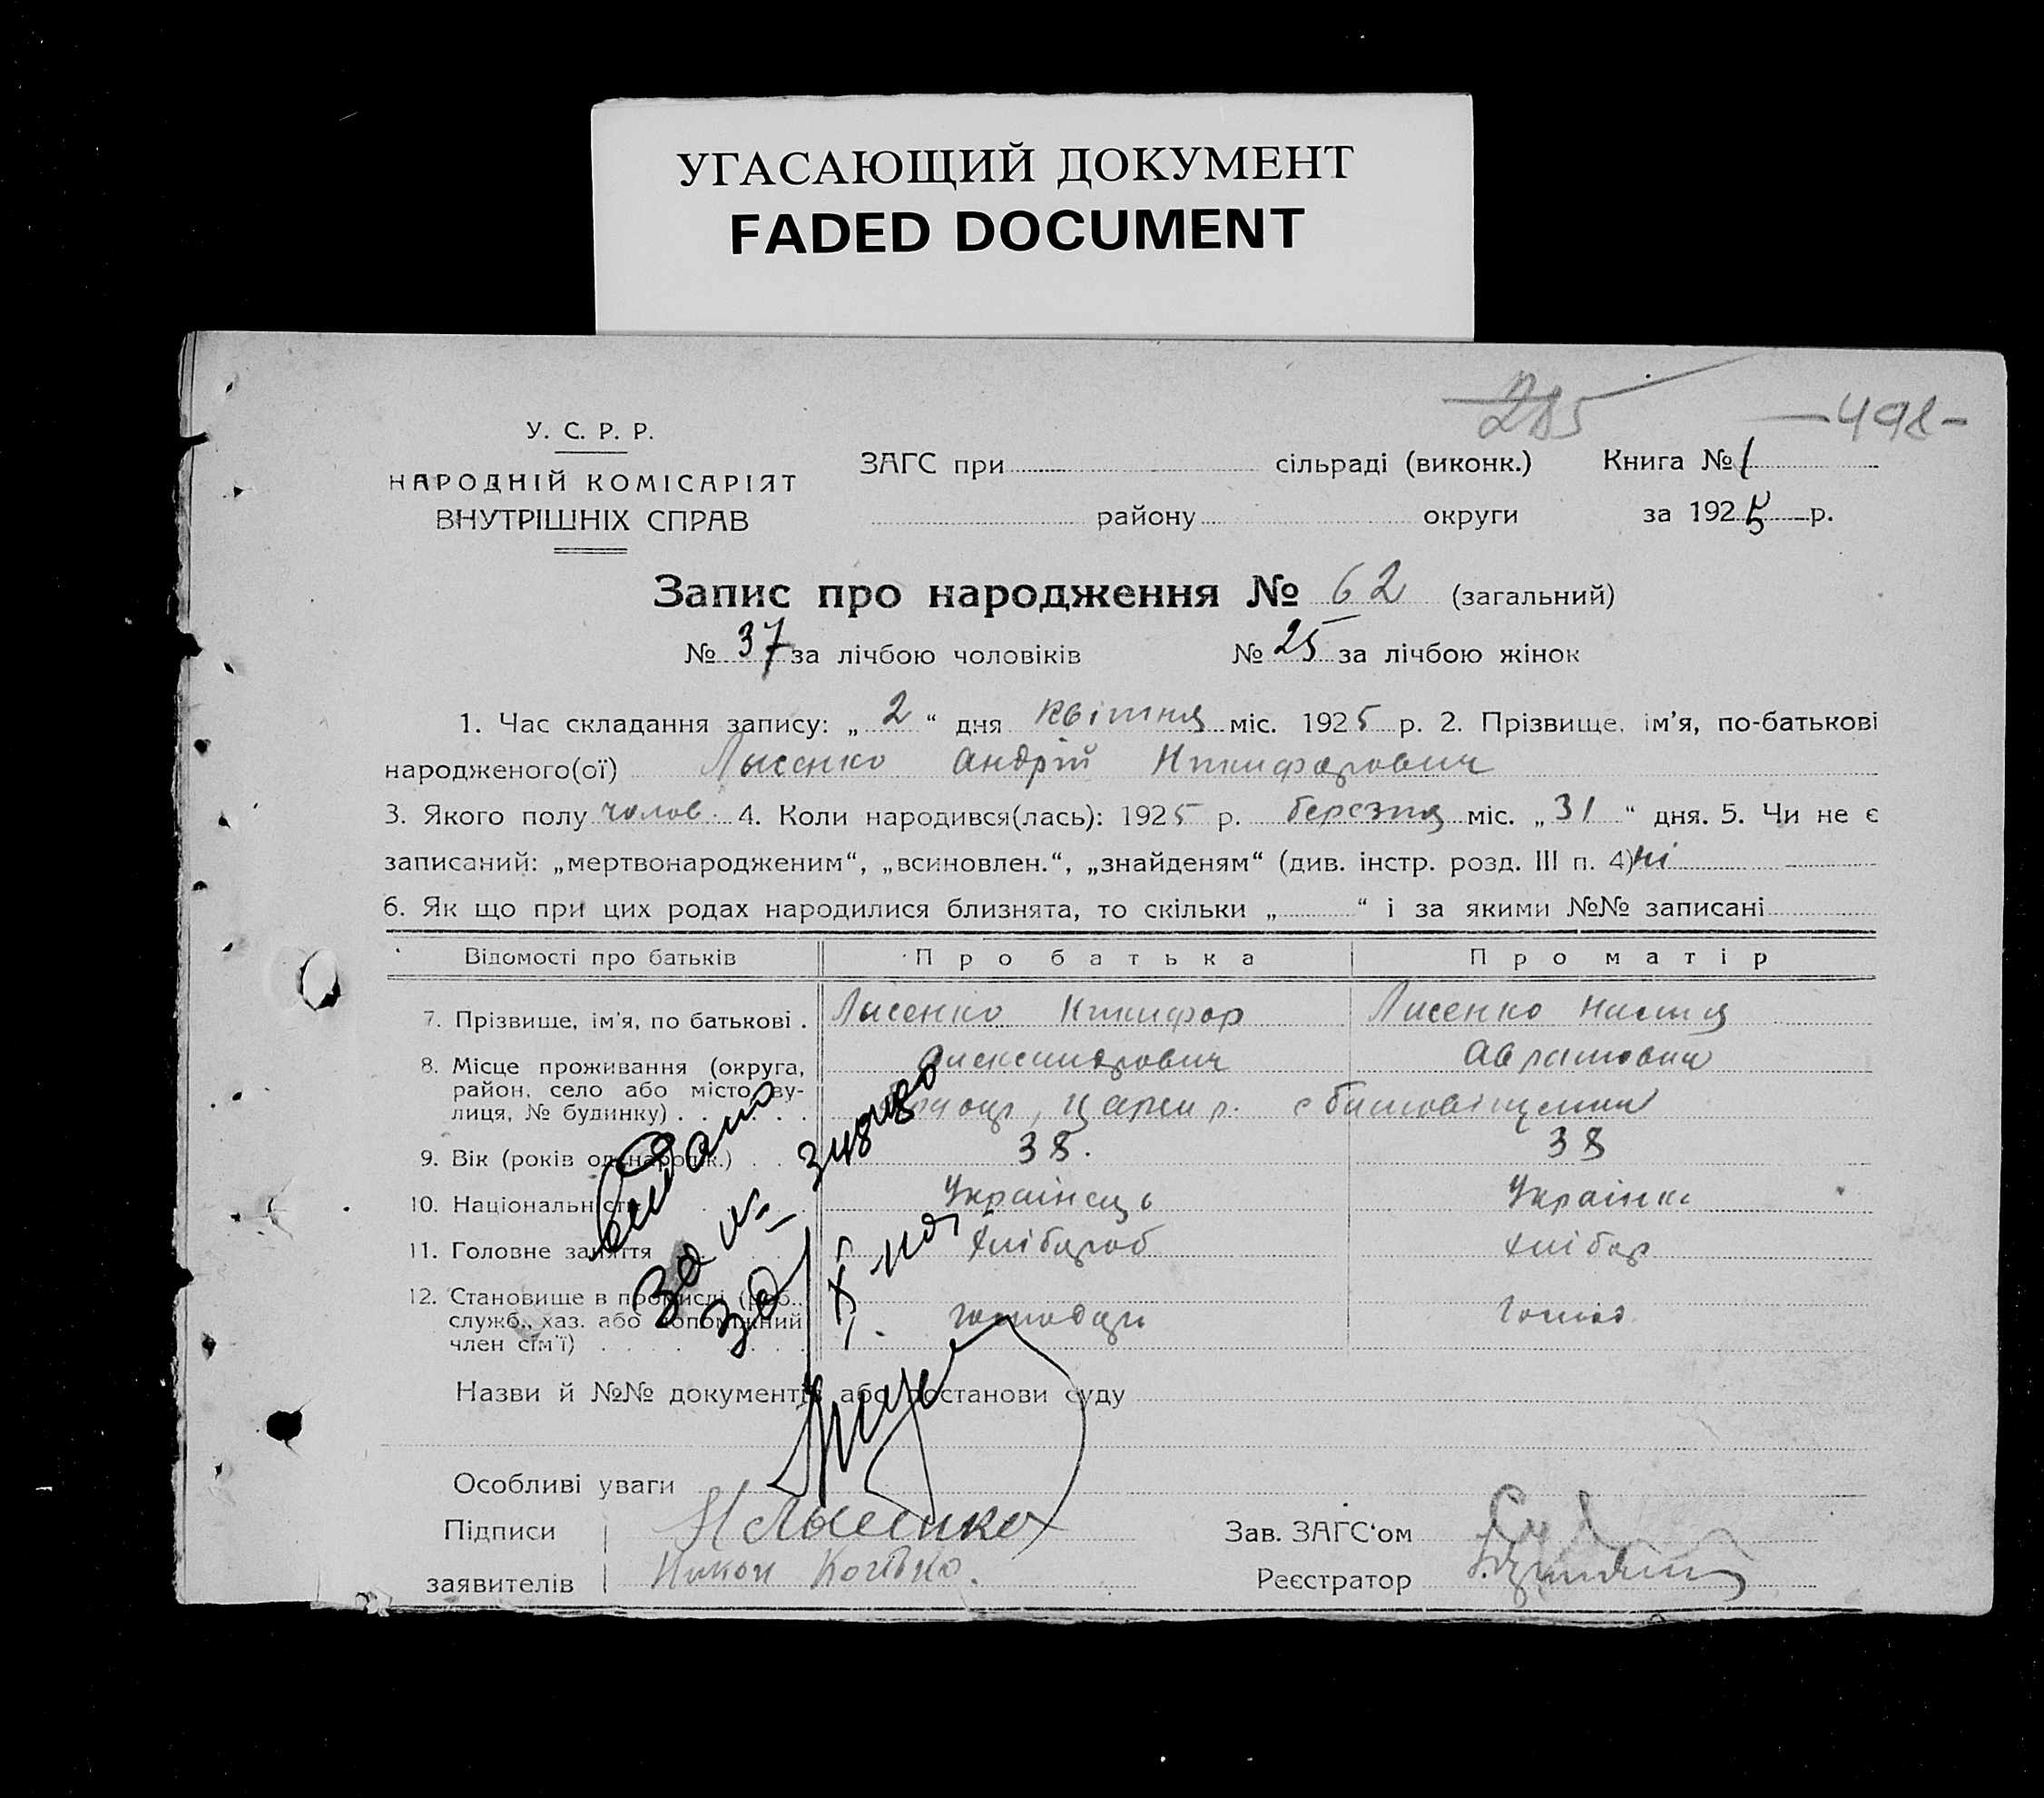 УГАСАЮЩИЙ ДОКУМЕНТ
FADED DOCUMENT
285
—498—
У. С. Р. Р.
НАРОДНІЙ КОМІСАРІЯТ
ВНУТРІШНІХ СПРАВ
ЗАГС при сільраді (виконк.) Книга № 1
району округи за 1925 р.
Запис про народження № 62 (загальний)
№ 37 за лічбою чоловіків № 25 за лічбою жінок
1. Час складання запису: „2“ дня квітня міс. 1925 р. 2. Прізвище, ім’я, по-батькові
народженого(ої) Лысенко Андрій Никифорович
3. Якого полу чолов. 4. Коли народився(лась): 1925 р. березня міс. „31“ дня. 5. Чи не є
записаний: „мертвонародженим“, „всиновлен.“, „знайденям“ (див. інстр. розд. III п. 4) ні
6. Як що при цих родах народилися близнята, то скільки „ “ і за якими №№ записані
Відомості про батьків Про батька Про матір
7. Прізвище, ім’я, по батькові . Лысенко Никифор Лисенко Настя
8. Місце проживання (округа, Александрович
район, село або місто, ву-
лиця, № будинку) . . . . . .
9. Вік (років од народж.) . . 38. 38
10. Національність Українець Українк
11. Головне заняття Хлібороб хлібор
12. Становище в промислі (роб.,
служб., хаз. або допоміжний господарь господ
член сім’ї) . . . . . . .
Назви й №№ документів або постанови суду
Особливі уваги
Підписи Н Лысенко Зав. ЗАГС‘ом
заявителів Никон Реєстратор